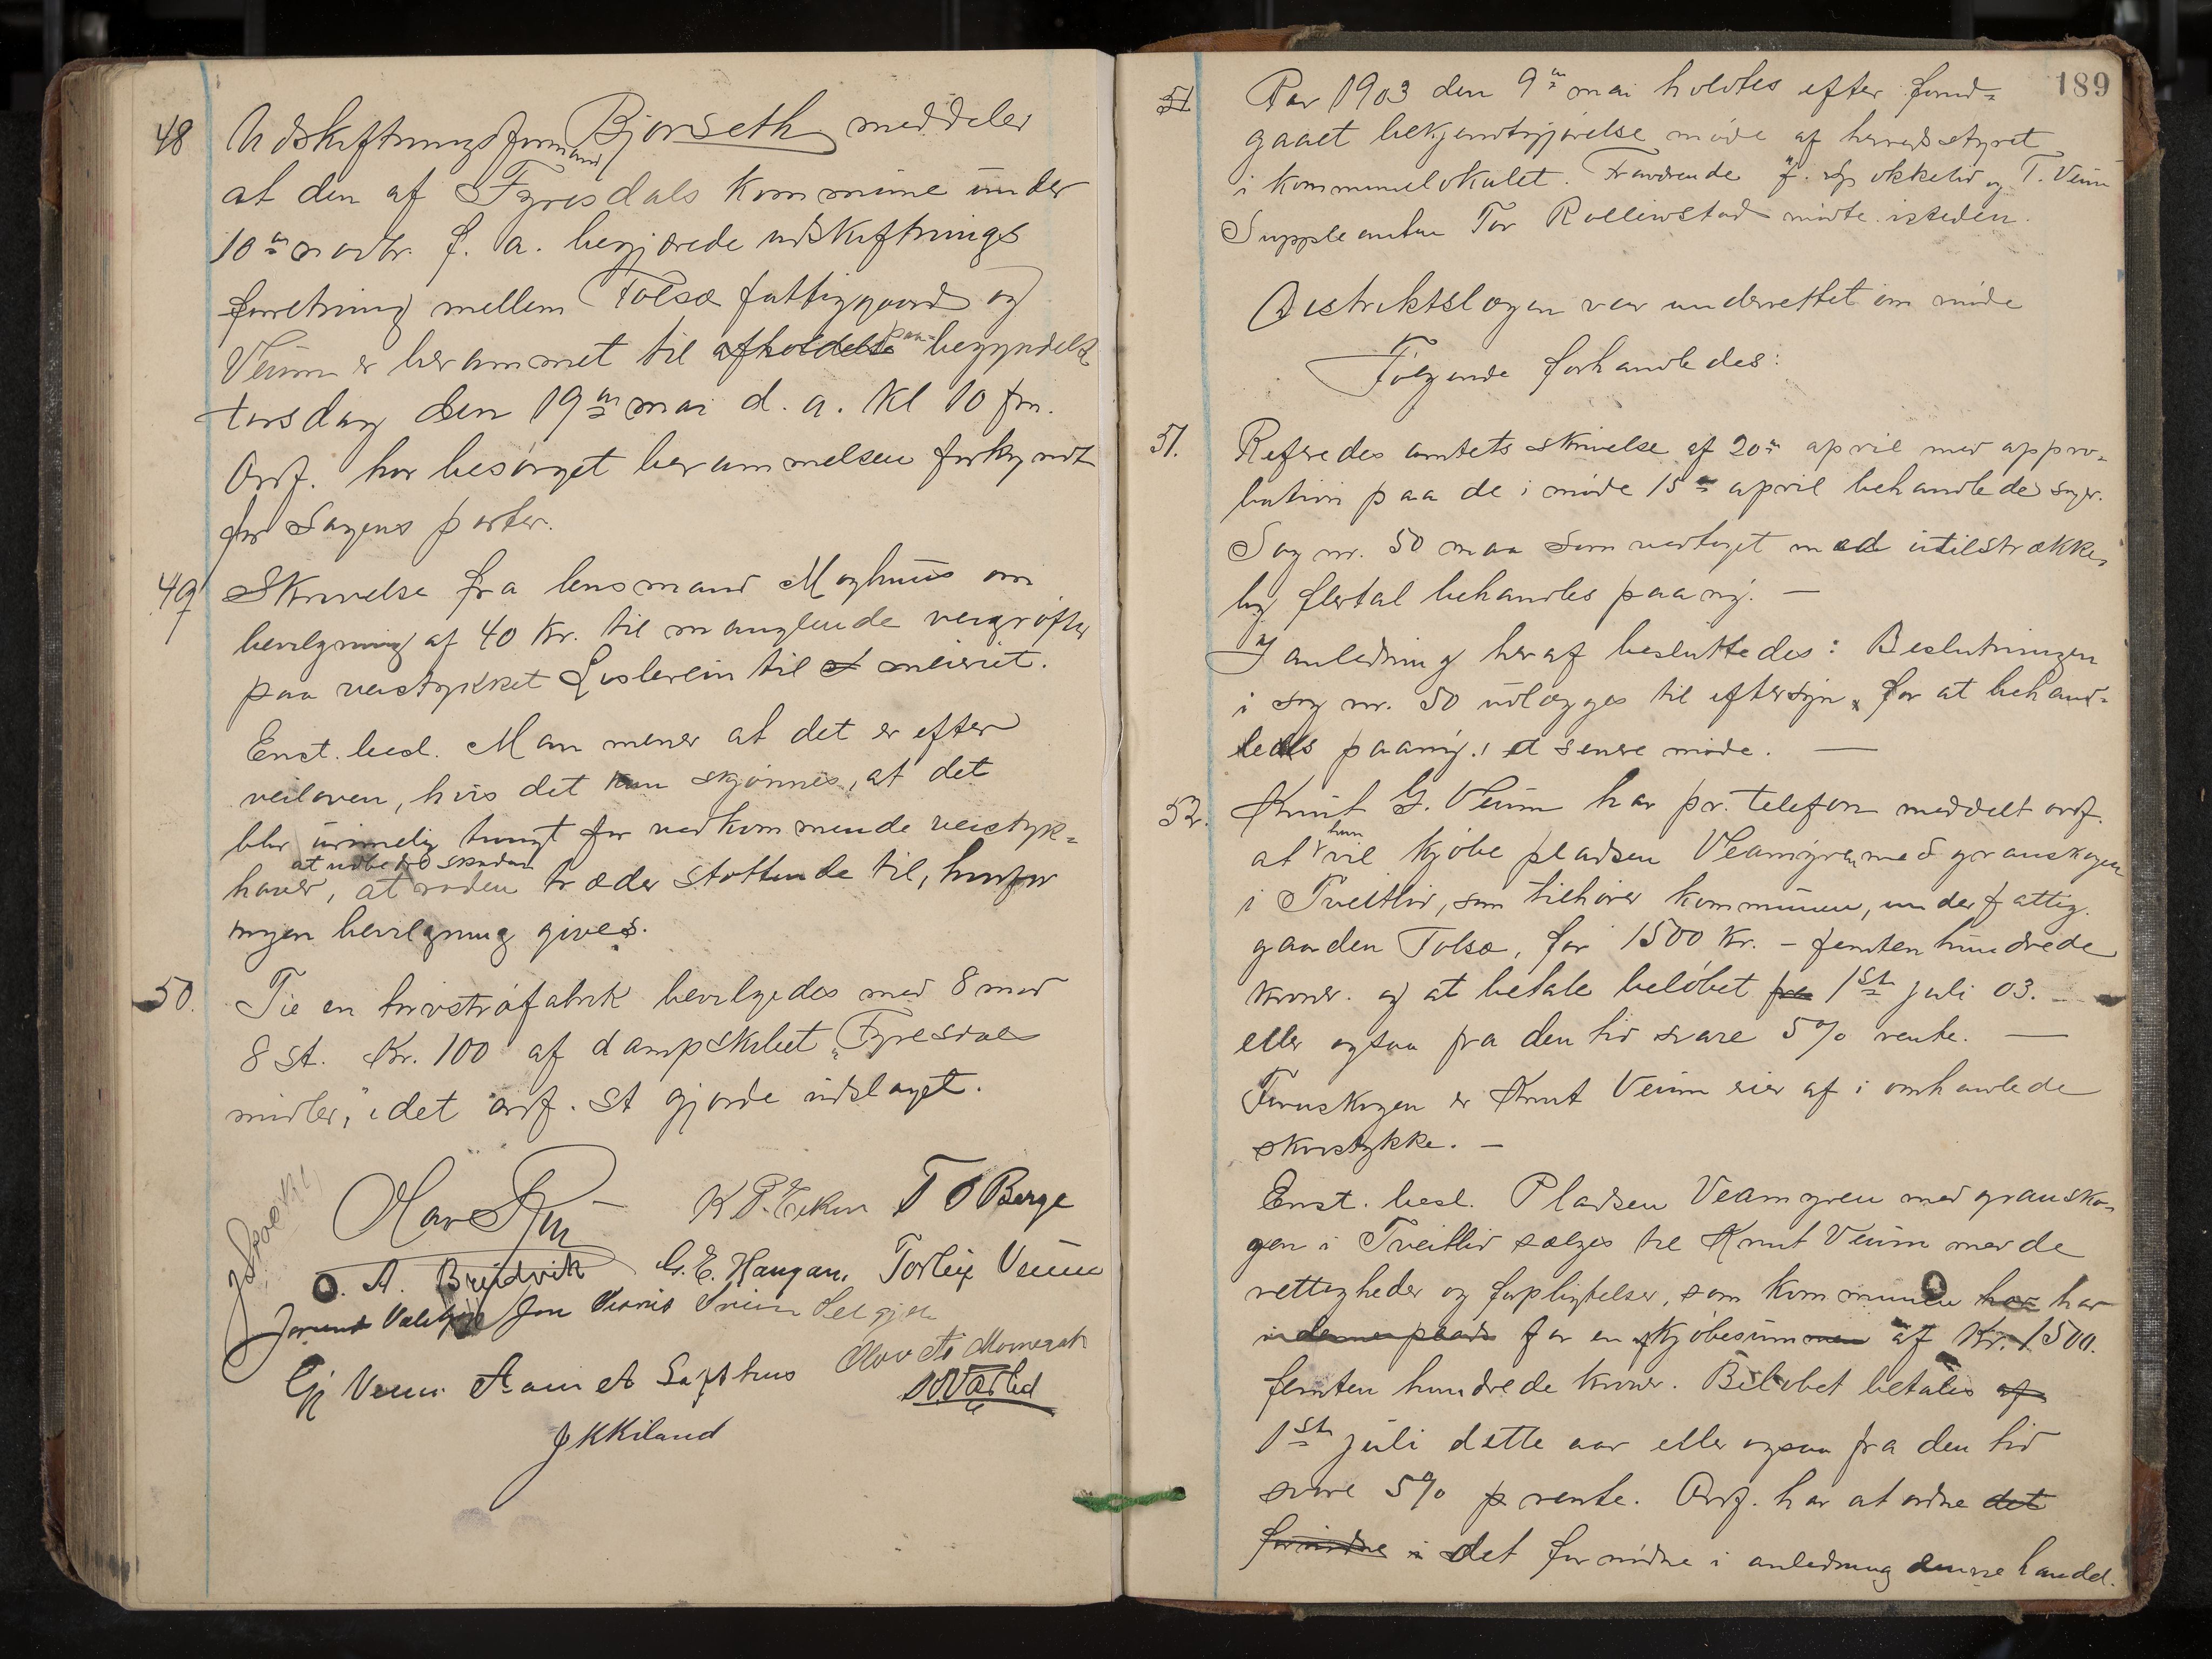 48 Udskiftningsformand Bjorseth meddeler
at den af Fyrisdals kommune under
10de novbr. f. a. begjærede udskiftnings
forretning mellem Tolsæ fattiggaard og
Veum er berammet til afholdelse paa-begyndelse
torsdag den 19de mai d. a. Kl 10 fm.
Ordf. har besørget berammelsen forkyndt
for Sagens parter.
49 Skrivelse fra lensmand Moghus om
bevilgning af 40 Kr. til manglende veigrøfter
paa veistykket til meieriet.
Enst. besl. Man mener at det er efter
veiloven, hvis det kan skjønnes, at det
blir urimelig tungt for vedkommende veistyk-
at udbedre skaden
haver, at roden træder støttende til, hvorfor
ingen bevilgning gives.
50. Til en torvstrøfabrik bevilgedes med 8 mod
8 st. Kr. 100 af dampskibet "Fyresdals
midler," idet ordf. st gjorde udslaget.
T O Berge
O. A. Breidvik G. E. Haugan. Torleif Veum
Jon
Gj Veum
J K Kiland
189
51 Aar 1903 den 9de mai holdtes efter forud-
gaaet bekjendtgjørelse møde af herredsstyret
i kommunelokalet. Fraværende og T. Veum
Suppleanten Tor Rolleivstad mødte isteden.
Distriktslægen var underrettet om møde
Følgende forhandledes:
51. Referedes amtets skrivelse af 20de april med appro-
bation paa de i møde 15de april behandlede sager.
Sag nr. 50 maa som vedtaget med utilstrække-
lig flertal behandles paany. —
I anledning heraf besluttedes: Beslutningen
i sag nr. 50 udlægges til eftersyn for at behand-
ledes paany i et senere møde. —
52. Knut G. Veum har pr. telefon meddelt ordf.
at han vil kjøbe pladsen Veamyren med granskogen
i Tveitlid, som tilhører kommunen, under fattig.
gaarden Tolsæ, for 1500 Kr. – femten hundrede
kroner. og at betale beløbet fra 1ste juli 03. –
eller ogsaa fra den tid svare 5% rente. —
Furuskogen er Knut Veum eier af i omhandlede
skovstykke. –
Enst. besl. Pladsen Veamyren med gransko-
gen i Tveitlid sælges til Knut Veum med de
rettigheder og forpligtelser, som kommunen har har
i denne plads for en kjøbesummen af Kr. 1500.
femten hundrede kroner. Beløbet betales af
1ste juli dette aar eller ogsaa fra den tid
svare 5% p rente. Ordf. har at ordne det
fornødne i det fornødne i anledning denne handel.